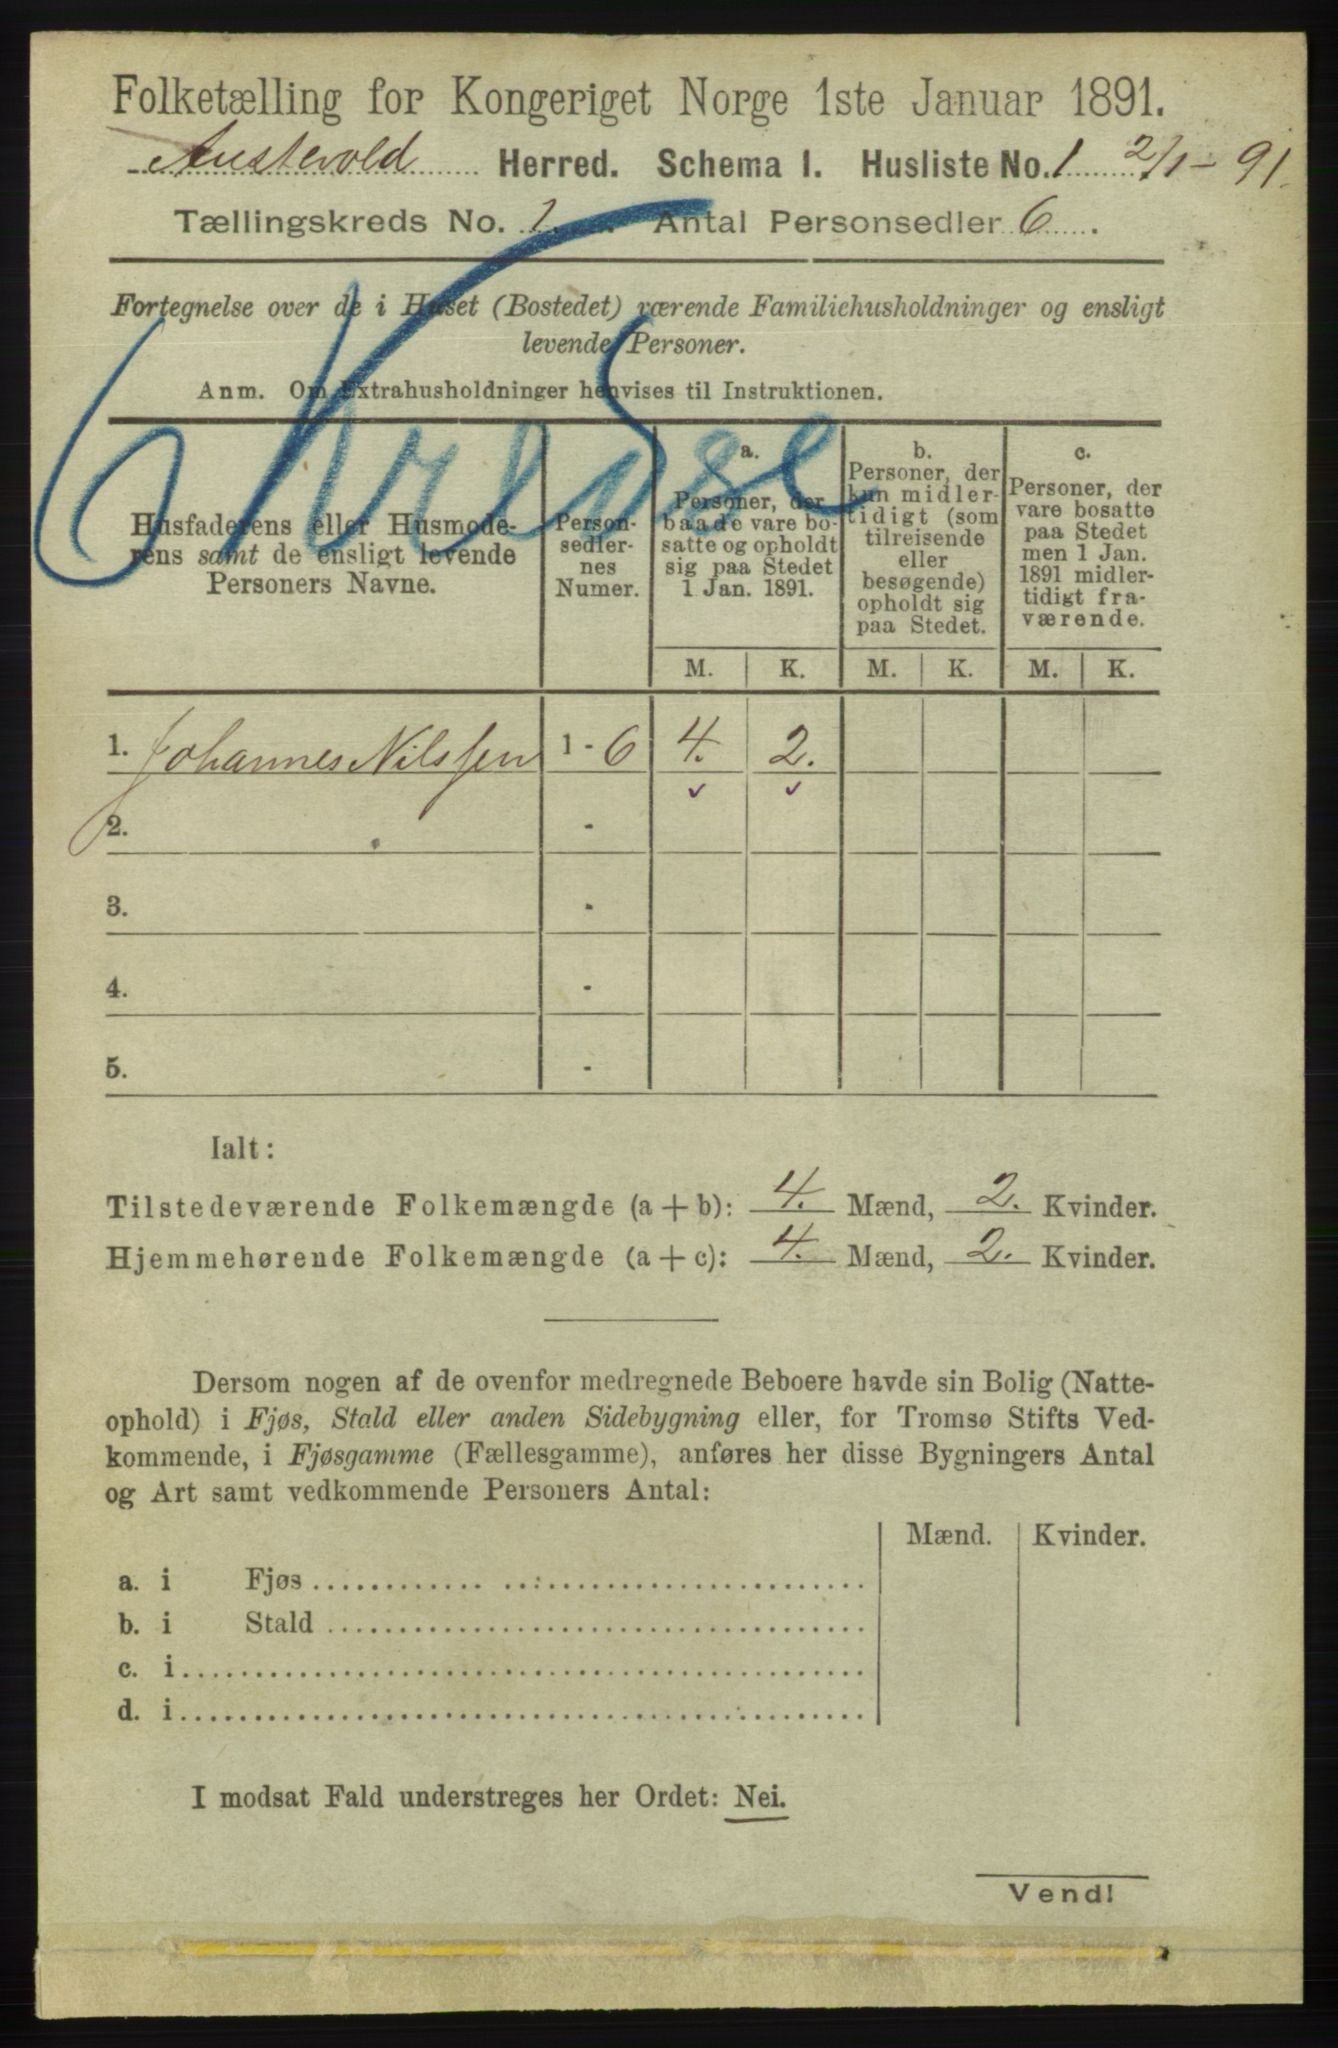 Folketælling for Kongeriget Norge 1ste Januar 1891.
Austevold Herred. Schema 1. Husliste No. 1 2/1-91.
Tællingskreds No. 1. Antal Personsedler 6.
Fortegnelse over de i Huset (Bostedet) værende Familiehusholdninger og ensligt
levende Personer.
Anm. Om Extrahusholdninger henvises til Instruktionen.
Husfaderens eller Husmode-
rens samt de ensligt levende
Personers Navne.
Person-
sedler-
nes
Numer.
a.
Personer, der
baade vare bo-
satte og opholdt
sig paa Stedet
1 Jan. 1891.
b.
Personer, der
kun midler-
tidigt (som
tilreisende
eller
besøgende)
opholdt sig
paa Stedet.
c.
Personer, der
vare bosatte
paa Stedet
men 1 Jan.
1891 midler-
tidigt fra-
værende.
M. K. M. K. M. K.
1. Johannes Nilssen 1 - 6 4. 2.
2. -
3. -
4. -
5. -
Ialt:
Tilstedeværende Folkemængde (a + b): 4. Mænd, 2. Kvinder.
Hjemmehørende Folkemængde (a + c): 4. Mænd, 2. Kvinder.
Dersom nogen af de ovenfor medregnede Beboere havde sin Bolig (Natte-
ophold) i Fjøs, Stald eller anden Sidebygning eller, for Tromsø Stifts Ved-
kommende, i Fjøsgamme (Fællesgamme), anføres her disse Bygningers Antal
og Art samt vedkommende Personers Antal:
Mænd. Kvinder.
a. i Fjøs
b. i Stald
c. i
d. i
I modsat Fald understreges her Ordet: Nei.
Vend!